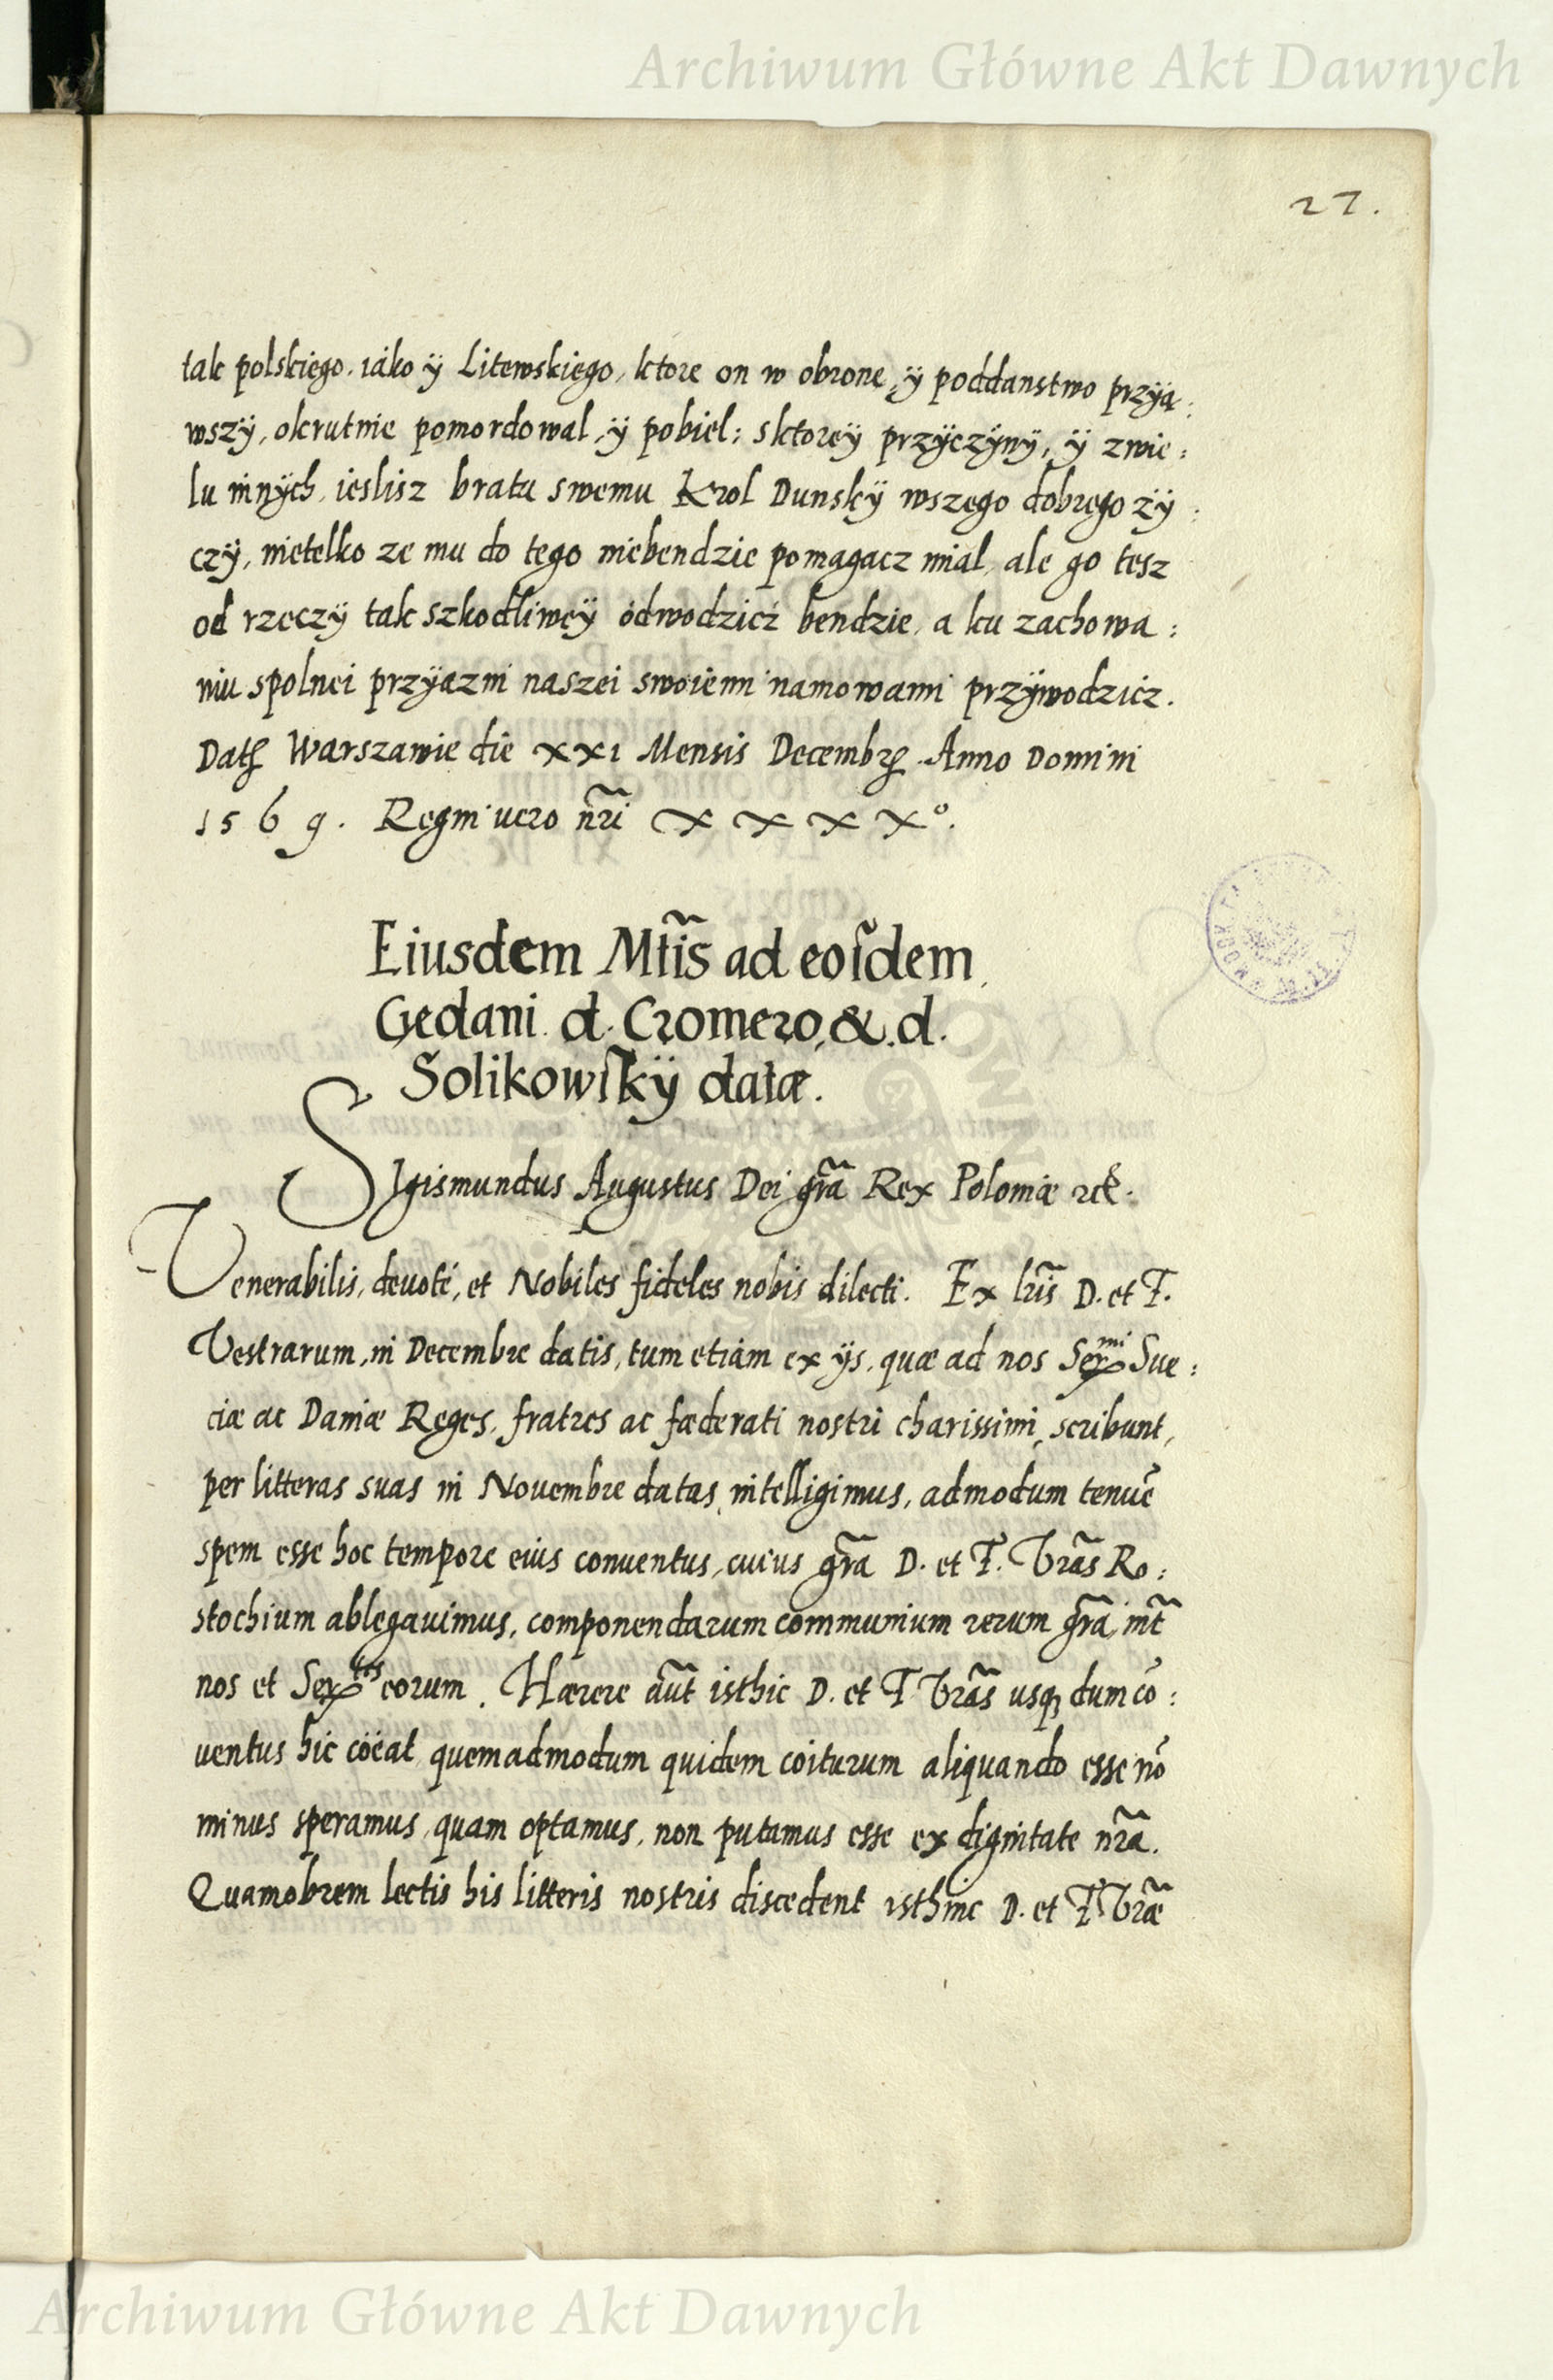 Archiwum Główne Akt Dawnych
27.
tak polskiego. iáko ÿ Litewskiego, ktore on w obrone, ÿ poddanstwo przyią:
wszÿ, okrutnie pomordowal, ÿ pobiel: sktoreÿ przÿczÿnÿ, ÿ zwie:
lu innÿch, ieslisz bratu swemu Krol Dunskÿ wszego dobrego zÿ:
czÿ, nietelko ze mu do tego niebendzie pomagacz mial, ale go tesz
od rzeczÿ tak szkodliweÿ odwodzicz bendzie, a ku zachowa:
niu spolnei przÿazni naszei swoiemi namowami przÿwodzicz.
Dat Warszawie die XXI Mensis Decembr Anno Domini
1569. Regni uero nr̃i XXXX°.
Eiusdem Mtĩs ad eoſdem
Gedani d. Cromero, & d.
Solikowſkÿ datæ.
SIgismundus Augustus Dei gr̃a Rex Poloniæ etc.
Venerabilis, deuote, et Nobiles fideles nobis dilecti. Ex lr̃is D. et F.
Vestrarum, in Decembre datis, tum etiam ex ÿs, quæ ad nos Serᵐⁱ Sue:
ciæ ac Daniæ Reges, fratres ac fæderati nostri charissimi, scribunt,
per litteras suas in Nouembre datas, intelligimus, admodum tenuẽ
spem esse hoc tempore eius conuentus, cuius gr̃a D. et F. Vr̃as Ro:
stochium ablegauimus, componendarum communium rerum gr̃a, int̃
nos et Serᵗᵉˢ eorum. Hærere aũt isthic D. et F Vr̃as usq; dum cõ:
uentus hic cöeat, quemadmodum quidem coiturum aliquando esse nõ
minus speramus, quam optamus, non putamus esse ex dignitate nr̃a.
Quamobrem lectis his litteris nostris discedent isthinc D. et F Vr̃æ
Archiwum Główne Akt Dawnych